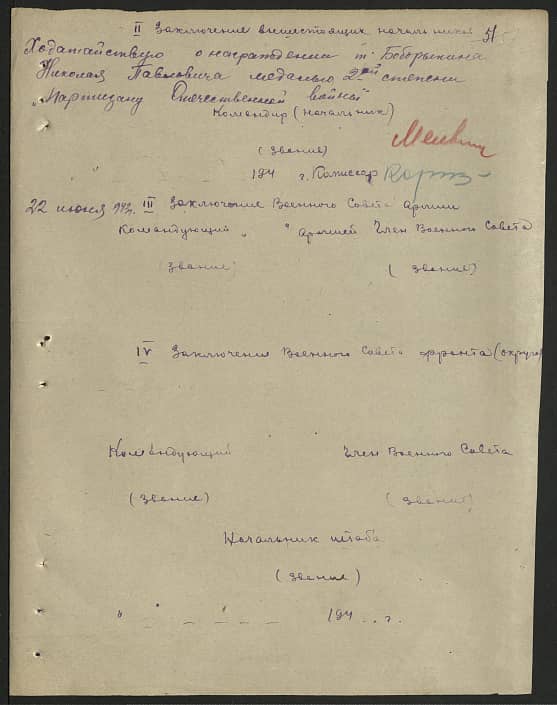 II Заключение вышестоящих начальников 51
Ходатайствую о награждении т. Бобрыкина
Николая Павловича медалью 2ой степени
„Партизану Отечественной войны"
Командир (начальник)
(звание)
194 г. Комиссар
22 июня 1943. III Заключение Военного Совета армии
Командующий „ " армией Член Военного Совета
(звание) (звание)
IV Заключения Военного Совета фронта (округа)
Командующий Член Военного Совета
(звание) (звание)
Начальник штаба
(звание)
" " 194...г.